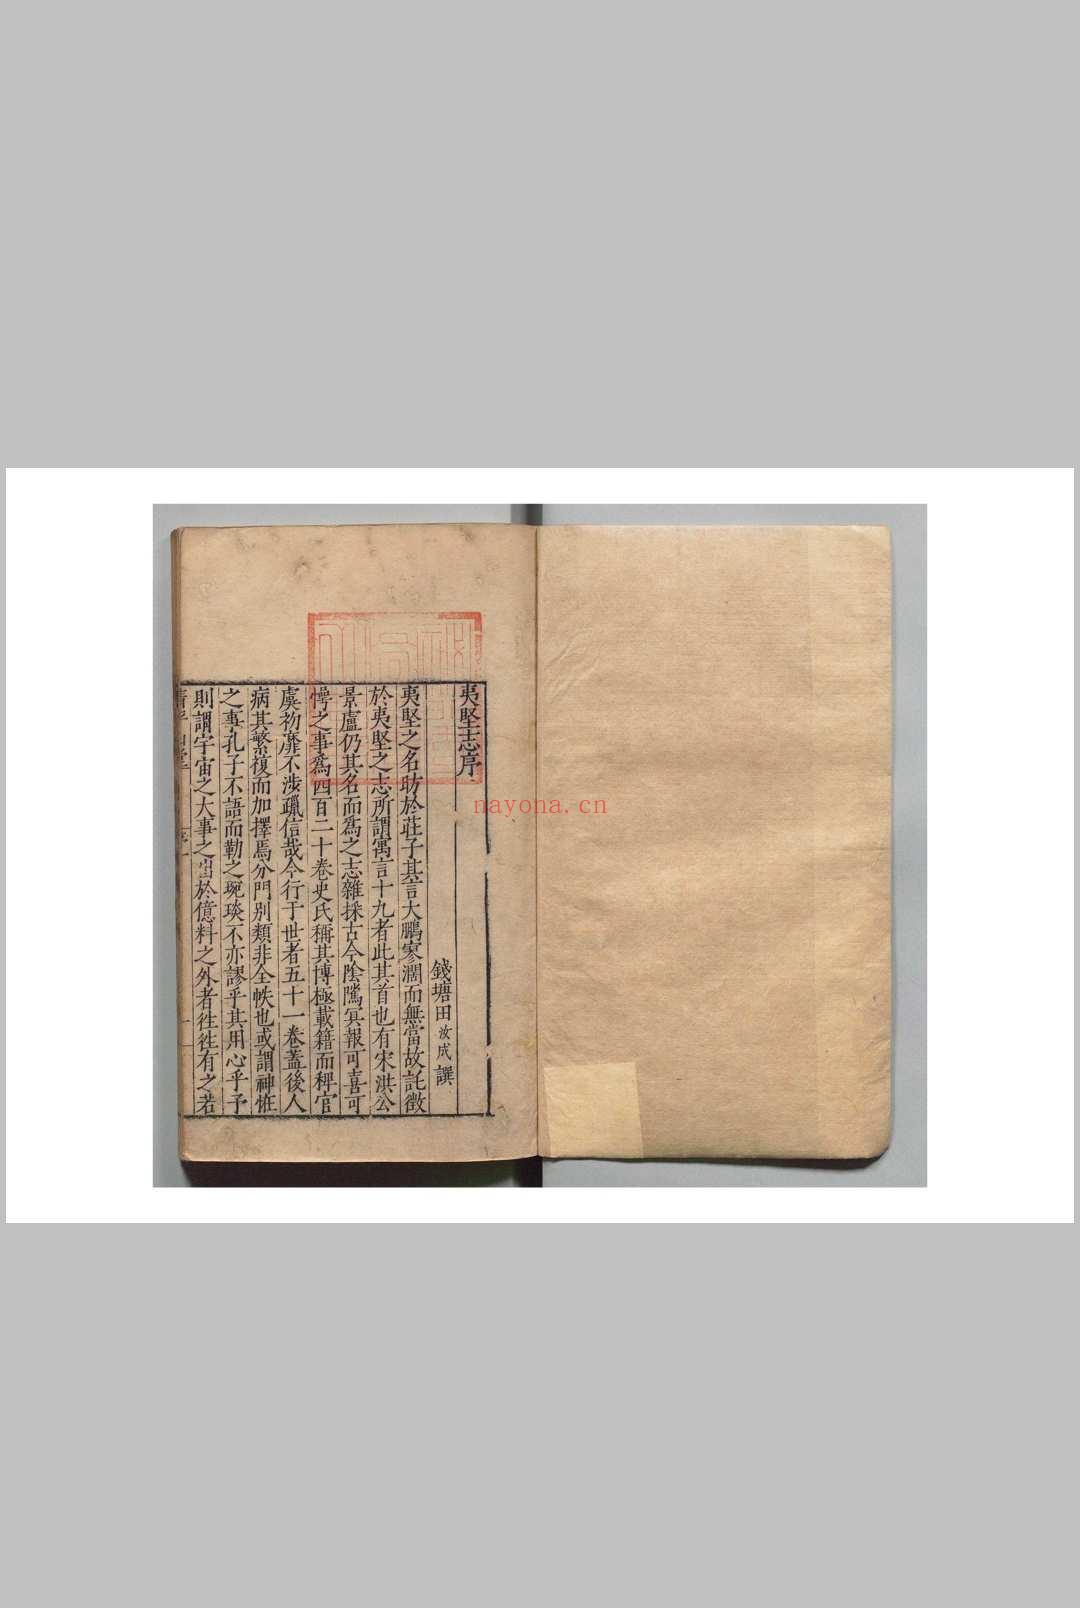 夷堅志序
錢塘田汝成譔
夷堅之名昉於莊子其言大鵬寥濶而無當故託徴
於夷堅之志所謂寓言十九者此其首也有宋洪公
景盧仍其名而爲之志雜採古今陰隲冥報可喜可
愕之事爲四百二十卷史氏稱其博極載籍而稗官
虞初靡不涉躐信哉今行于世者五十一卷蓋後人
病其繁復而加擇焉分門别類非全帙也或謂神恠
之事孔子不語而勒之琬琰不亦謬乎其用心乎予
則謂宇宙之大事之出於億料之外者徃徃有之若
nayona.cn